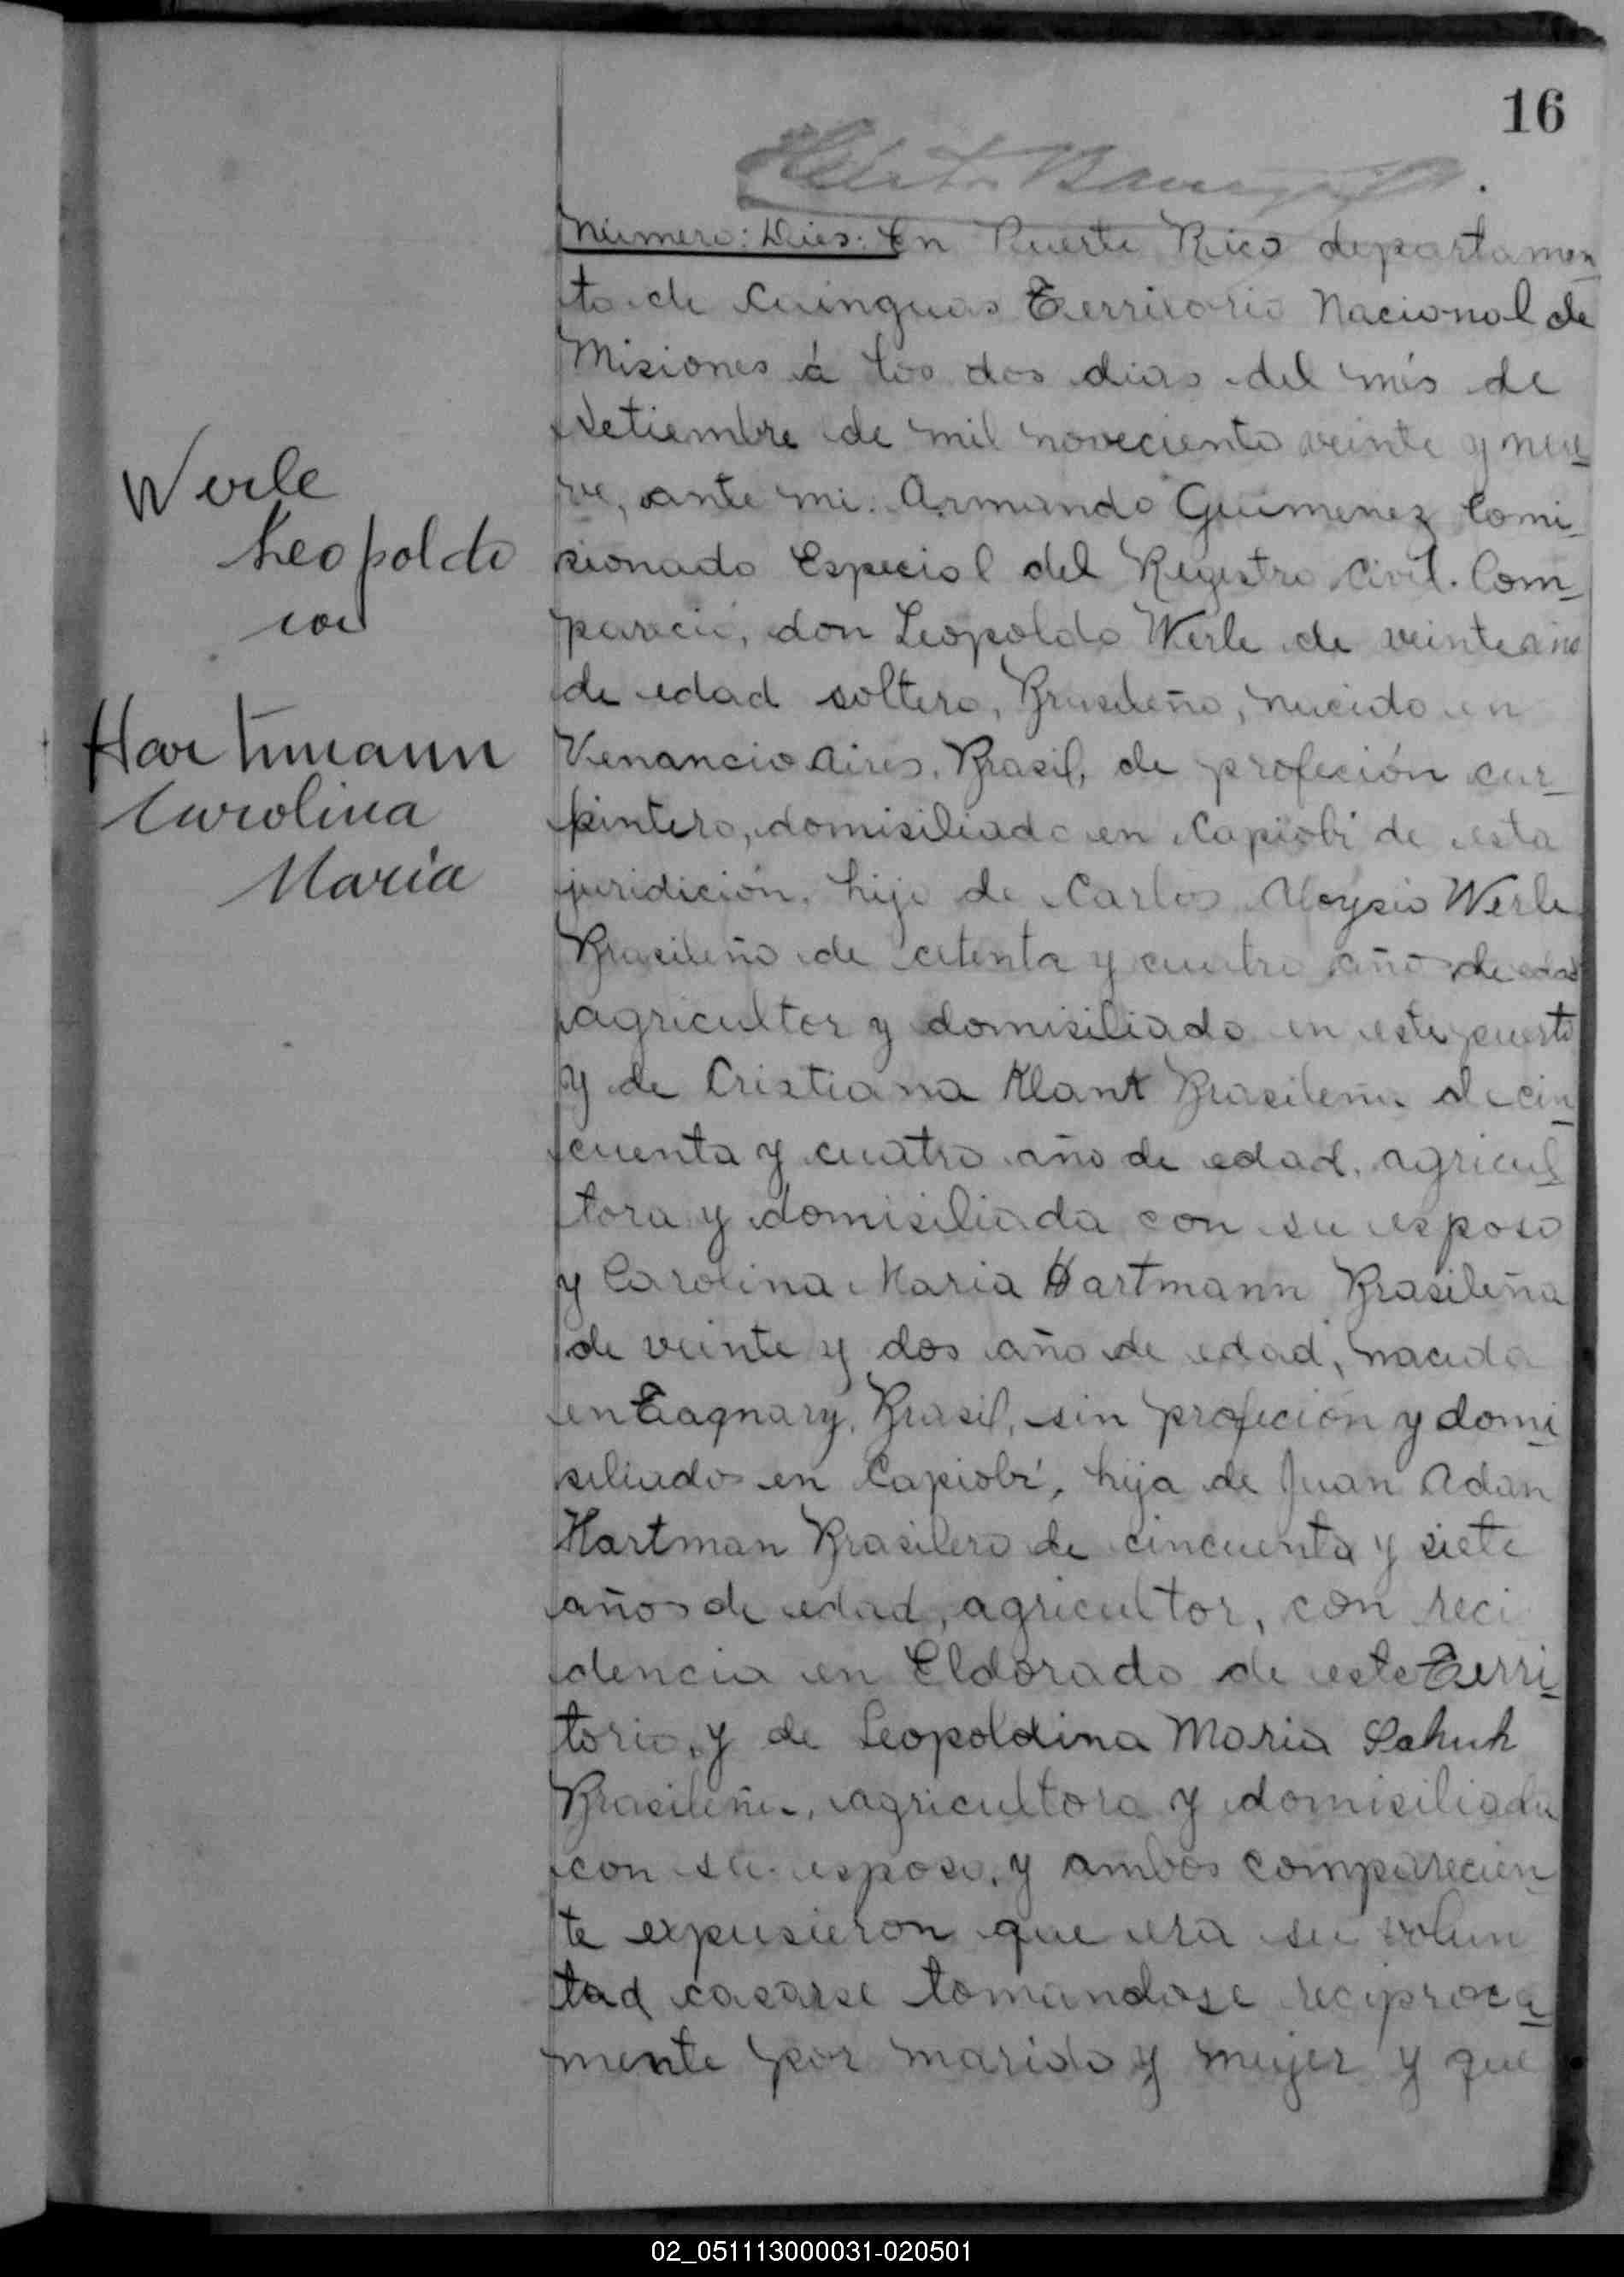 16
Werle
Leopoldo
con
Hartmann
Carolina
Maria
Número: Dies: En Puerto Rico departamen
to de Cainguas Territorio Nacional de
Misiones á los dos dias del més de
Setiembre de mil noveciento veinte y nue
ve, ante mi. Armando Guimenez Comi
sionado Especial del Registro Civil. Com
pareció, don Leopoldo Werle de veinte año
de edad soltero, Brasileño, nacido en
Venancio Aires, Brasil, de profeción car
pintero, domisiliado en Capiobí de esta
juridición, hijo de Carlos Aloysio Werle
Brasileño de cetenta y cuatro años de edad
agricultor y domisiliado en este puerto
y de Cristiana Klant Brasileña de cin
cuenta y cuatro año de edad, agricul
tora y domisiliada con su esposo
y Carolina Maria Hartmann Brasileña
de veinte y dos año de edad, nacida
en Taqnary, Brasil, sin profeción y domi
siliados en Capiobí, hija de Juan Adan
Hartman Brasilero de cincuenta y siete
años de edad, agricultor, con reci
dencia en Eldorado de este Terri
torio, y de Leopoldina Maria Sohuh
Brasileña, agricultora y domisiliada
con su esposo, y ambos comparecien
te expusieron que era su volun
tad casarse tomandose reciproca
mente por marido y mujer y que
02_051113000031-020501